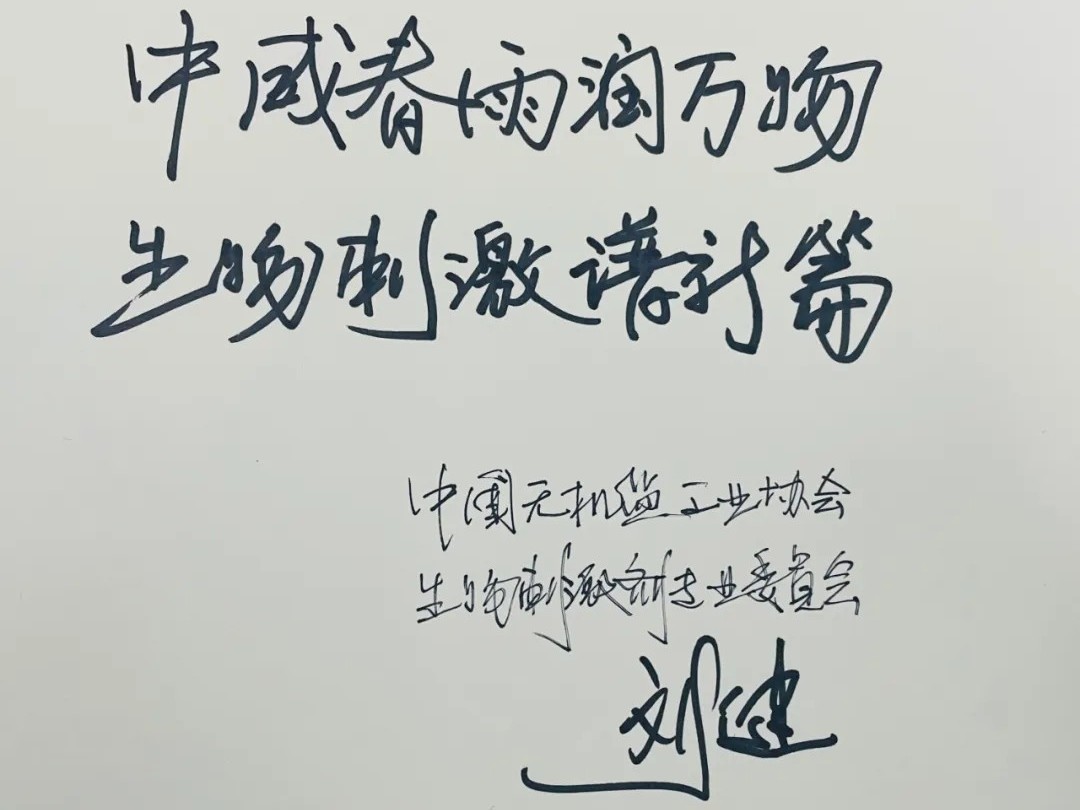 中威春雨润万物
生物刺激谱新篇
中国无机盐工业协会
生物刺激剂专业委员会
刘建